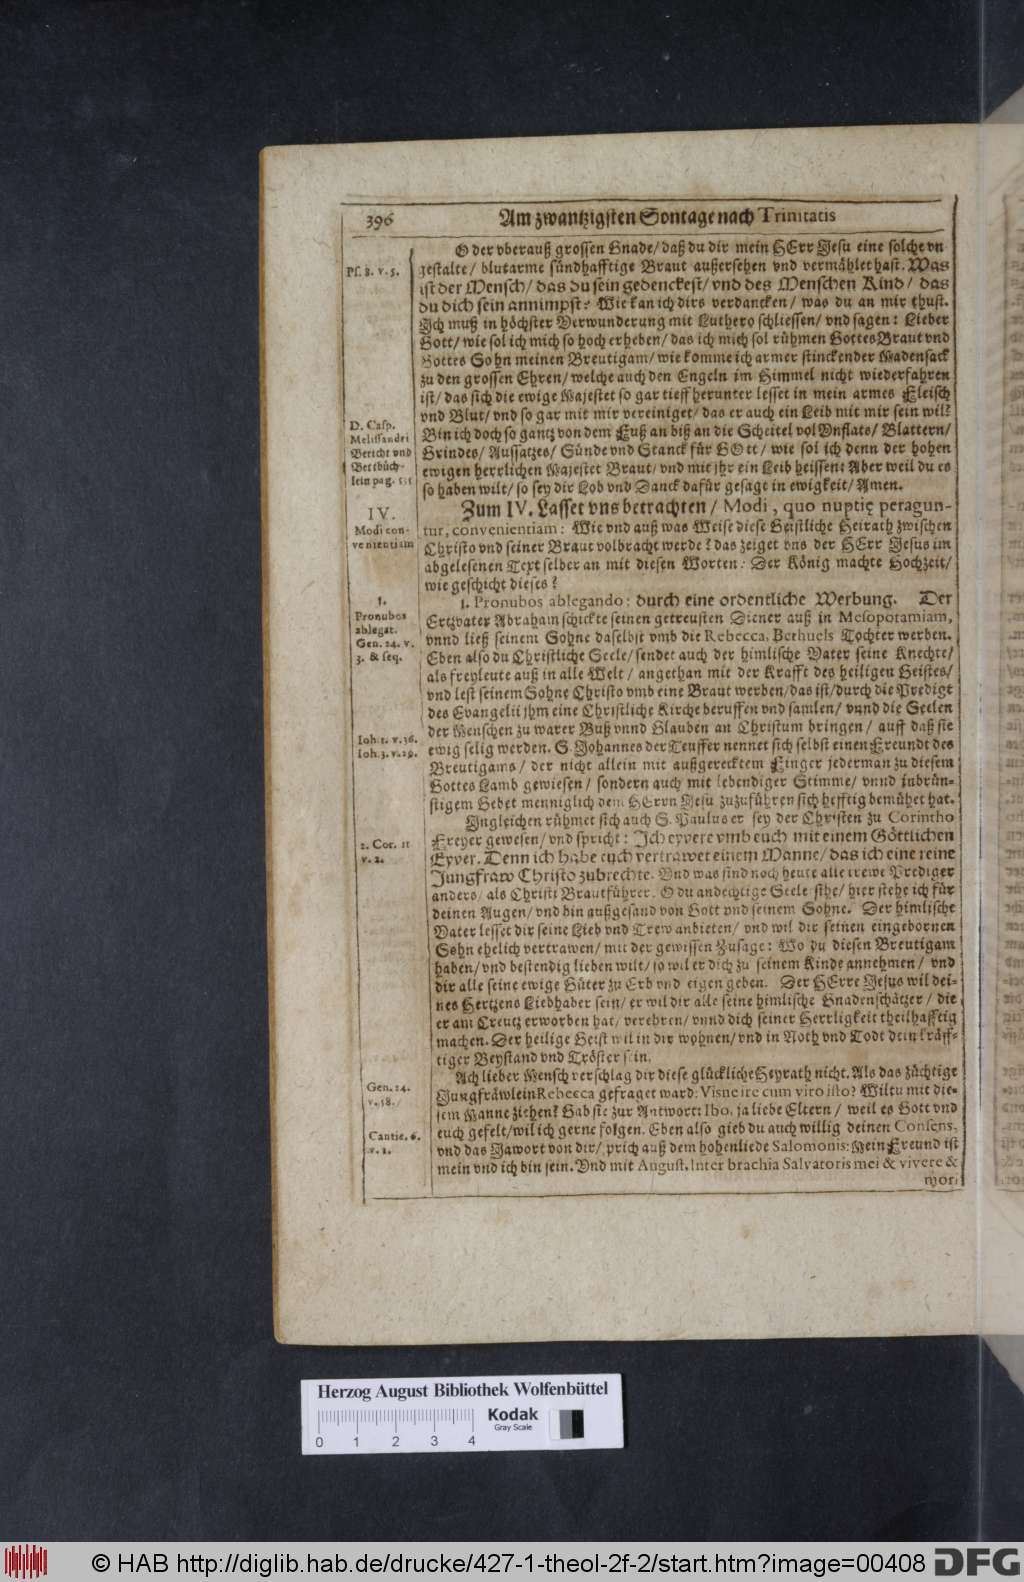 396 Am zwantzigsten Sontage nach Trinitatis
O der vberauß grossen Gnade/ daß du dir mein HErr Jesu eine solche vn
Ps. 8. v. 5.
gestalte/ blutarme sündhafftige Braut außersehen vnd vermählet hast. Was
ist der Mensch/ das du sein gedenckest/ vnd des Menschen Kind/ das
du dich sein annimpst? Wie kan ich dirs verdancken/ was du an mir thust.
Ich muß in höchster Verwunderung mit Luthero schliessen/ vnd sagen: Lieber
Gott/ wie sol ich mich so hoch erheben/ das ich mich sol rühmen Gottes Braut vnd
Gottes Sohn meinen Breutigam/ wie komme ich armer stinckender Madensack
zu den grossen Ehren/ welche auch den Engeln im Himmel nicht wiederfahren
ist/ das sich die ewige Majestet so gar tieff herunter lesset in mein armes Fleisch
vnd Blut/ vnd so gar mit mir vereiniget/ das er auch ein Leib mit mir sein wil?
D. Casp.
Melissandri
Bericht vnd
Betbüch-
lein pag. 515
Bin ich doch so gantz von dem Fuß an biß an die Scheitel vol Vnflats/ Blattern/
Grindes/ Aussatzes/ Sünde vnd Stanck für GOtt/ wie sol ich denn der hohen
ewigen herrlichen Majestet Braut/ vnd mit jhr ein Leib heissen? Aber weil du es
so haben wilt/ so sey dir Lob vnd Danck dafür gesagt in ewigkeit/ Amen.
IV.
Modi con-
venientiam
Zum IV. Lasset vns betrachten/ Modi, quo nuptię peragun-
tur, convenientiam: Wie vnd auß was Weise diese Geistliche Heirath zwischen
Christo vnd seiner Braut volbracht werde? das zeiget vns der HErr Jesus im
abgelesenen Text selber an mit diesen Worten: Der König machte Hochzeit/
wie geschicht dieses?
1.
Pronubos
ablegat.
Gen. 24. v.
3. & seq.
1. Pronubos ablegando: durch eine ordentliche Werbung. Der
Ertzvater Abraham schickte seinen getreusten Diener auß in Mesopotamiam,
vnnd ließ seinem Sohne daselbst vmb die Rebecca, Bethuels Tochter werben.
Eben also du Christliche Seele/ sendet auch der himlische Vater seine Knechte/
als freyleute auß in alle Welt/ angethan mit der Krafft des heiligen Geistes/
vnd lest seinem Sohne Christo vmb eine Braut werben/ das ist/ durch die Predigt
des Evangelii jhm eine Christliche Kirche beruffen vnd samlen/ vnnd die Seelen
der Menschen zu warer Buß vnnd Glauben an Christum bringen/ auff daß sie
Ioh. 1. v. 36.
Ioh. 3. v. 29.
ewig selig werden. S. Johannes der Teuffer nennet sich selbst einen Freundt des
Breutigams/ der nicht allein mit außgerecktem Finger jederman zu diesem
Gottes Lamb gewiesen/ sondern auch mit lebendiger Stimme/ vnnd inbrün-
stigem Gebet menniglich dem HErrn Jesu zuzuführen sich hefftig bemühet hat.
Ingleichen rühmet sich auch S. Paulus er sey der Christen zu Corintho
2. Cor. 11
v. 2.
Freyer gewesen/ vnd spricht: Ich eyvere vmb euch mit einem Göttlichen
Eyver. Denn ich habe euch vertrawet einem Manne/ das ich eine reine
Jungfraw Christo zubrechte. Vnd was sind noch heute alle trewe Prediger
anders/ als Christi Brautführer. O du andechtige Seele sihe/ hier stehe ich für
deinen Augen/ vnd bin außgesand von Gott vnd seinem Sohne. Der himlische
Vater lesset dir seine Lieb vnd Trew anbieten/ vnd wil dir seinen eingebornen
Sohn ehelich vertrawen/ mit der gewissen Zusage: Wo du diesen Breutigam
haben/ vnd bestendig lieben wilt/ so wil er dich zu seinem Kinde annehmen/ vnd
dir alle seine ewige Güter zu Erb vnd eigen geben. Der HErre Jesus wil dei-
nes Hertzens Liebhaber sein/ er wil dir alle seine himlische Gnadenschätzer/ die
er am Creutz erworben hat/ verehren/ vnnd dich seiner Herrligkeit theilhafftig
machen. Der heilige Geist wil in dir wohnen/ vnd in Noth vnd Todt dein kräff-
tiger Beystand vnd Tröster sein.
Gen. 24.
v. 58.
Ach lieber Mensch verschlag dir diese glückliche Heyrath nicht. Als das züchtige
Jungfräwlein Rebecca gefraget ward: Visne ire cum viro isto? Wiltu mit die-
sem Manne ziehen? Gab sie zur Antwort: Ibo, ja liebe Eltern/ weil es Gott vnd
Cantic. 6.
v. 2.
euch gefelt/ wil ich gerne folgen. Eben also gieb du auch willig deinen Consens,
vnd das Jawort von dir/ sprich auß dem hohenliede Salomonis: Mein Freund ist
mein vnd ich bin sein. Vnd mit August. Inter brachia Salvatoris mei & vivere &
mori
Herzog August Bibliothek Wolfenbüttel
Kodak
Gray Scale
0 1 2 3 4
© HAB http://diglib.hab.de/drucke/427-1-theol-2f-2/start.htm?image=00408 DFG